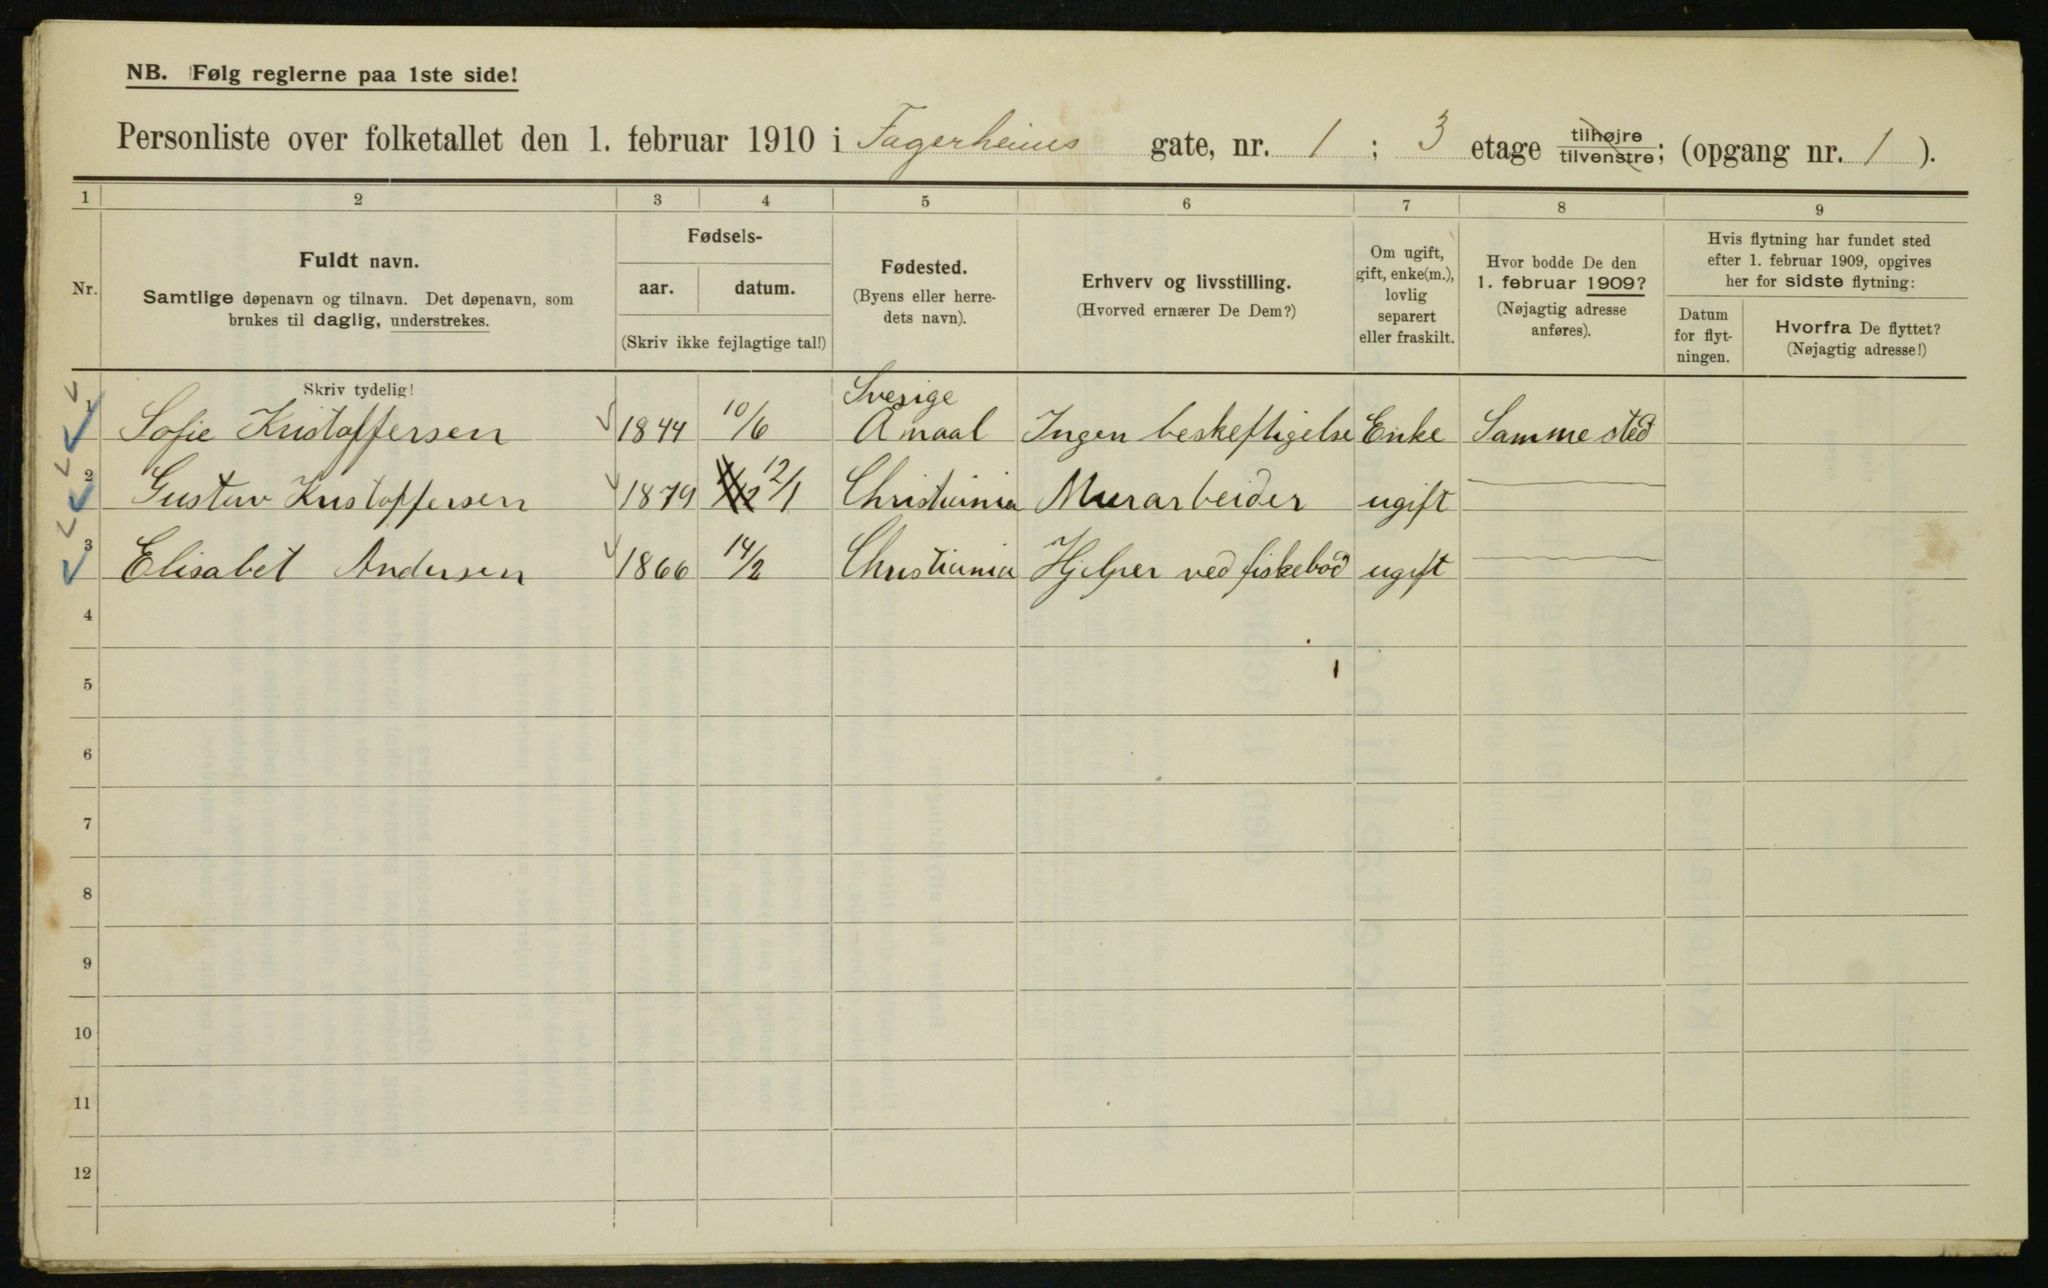 NB. Følg reglerne paa 1ste side!
Personliste over folketallet den 1. februar 1910 i Fagerheims gate, nr. 1 ; 3 etage tilhøjre tilvenstre; (opgang nr. 1 ).
1 2 3 4 5 6 7 8 9
Nr.
Fuldt navn.
Samtlige døpenavn og tilnavn. Det døpenavn, som
brukes til daglig, understrekes.
Fødsels-
aar. datum.
(Skriv ikke fejlagtige tal!)
Fødested.
(Byens eller herre-
dets navn).
Erhverv og livsstilling.
(Hvorved ernærer De Dem?)
Om ugift,
gift, enke(m.),
lovlig
separert
eller fraskilt.
Hvor bodde De den
1. februar 1909?
(Nøjagtig adresse
anføres).
Hvis flytning har fundet sted
efter 1. februar 1909, opgives
her for sidste flytning:
Datum
for flyt-
ningen.
Hvorfra De flyttet?
(Nøjagtig adresse!)
Skriv tydelig!
Sverige
1 Sofie Kristoffersen 1844 10/6 Amaal Ingen beskeftigelse Enke Samme sted
2 Gustav Kristoffersen 1879 12/1 Christiania Murarbeider ugift
3 Elisabet Andersen 1866 14/2 Christiania Hjelper ved fiskebod ugift
4
5
6
7
8
9
10
11
12